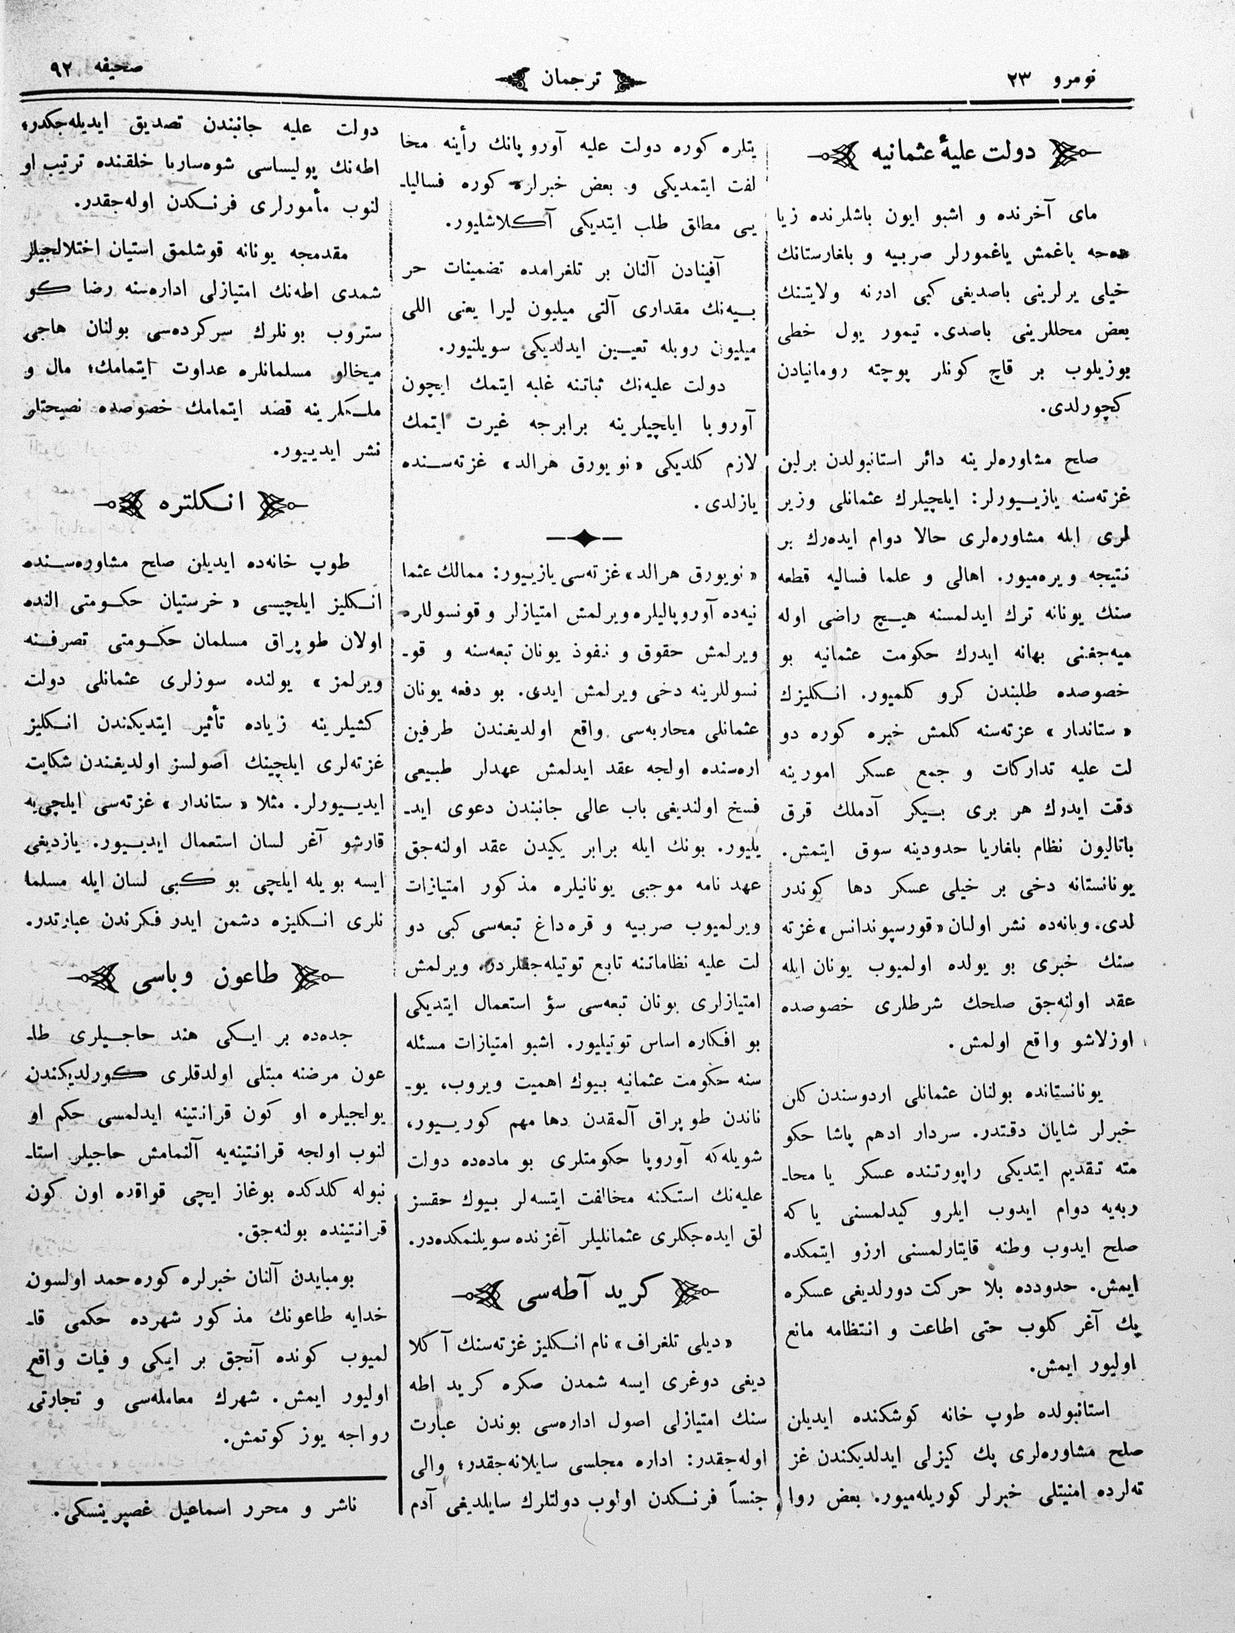 نومرو ٢٣
ترجمان
صحيفه ٩٢
دولت عليۀ عثمانيه
ماى آخرنده و اشبو ايون باشلرنده زيا
دەجه ياغمش ياغمورلر صربيه و باغارستانك
خيلى يرلرينى باصديغى كبى ادرنه ولايتنك
بعض محللرينى باصدى. تيمور يول خطى
بوزيلوب بر قاچ كونلر پوچته رومانيادن
كچورلدى.
صلح مشاورەلرينه دائر استانبولدن برلين
غزتەسنه يازيـيورلر: ايلچيلرك عثمانلى وزير
لرى ايله مشاورەلرى حالا دوام ايدەرك بر
نتيجه ويرەميور. اهالى و علما فساليه قطعه
سنك يونانه ترك ايدلمسنه هيـچ راضى اوله
ميەجغنى بهانه ايدرك حكومت عثمانيه بو
خصوصده طلبندن كرو كلميور. انـكليزك
«ستاندار» عزتەسنه كلمش خبره كوره دو
لت عليه تداركات و جمع عسكر امورينه
دقت ايدرك هر برى بـيكر آدملك قرق
باتاليون نظام باغاريا حدودينه سوق ايتمش.
يونانستانه دخى بر خيلى عسكر دها كوندر
لدى. ويانەده نشر اولنان «قورسپوندانس» غزته
سنك خبرى بو يولده اولميوب يونان ايله
عقد اولنەجق صلحك شرطلرى خصوصده
اوزلاشو واقع اولمش.
يونانستانده بولنان عثمانلى اردوسندن كلن
خبرلر شايان دقتدر. سردار ادهم پاشا حكو
مته تقديم ايتديكى راپورتنده عسكر يا محا‍ـ
ربەيه دوام ايدوب ايلرو كيدلمسنى ياكه
صلح ايدوب وطنه قايتارلمسنى ارزو ايتمكده
ايمش. حدودده بلا حركت دورلديغى عسكره
پك آغر كلوب حتى اطاعت و انتظامه مانع
اوليور ايمش.
استانبولده طوپ خانه كوشكنده ايديلن
صلح مشاورەلرى پك كيزلى ايدلديكندن غز
تەلرده امنيتلى خبرلر كوريلەميور. بعض روا
يتلره كوره دولت عليه آوروپانك رأينه مخا
لفت ايتمديكى و بعض خبرلره كوره فساليا‍ـ
يـى مطلق طلب ايتديكى آكلاشليور.
آفينادن آلنان بر تلغرامده تضمينات حر
بـيەنك مقدارى آلتى ميليون ليرا يعنى اللى
ميليون روبله تعيـين ايدلديكى سويلنيور.
دولت عليەنك ثباتنه غلبه ايتمك ايچون
آوروپا ايلچيلرينه برابرجه غيرت ايتمك
لازم كلديكى «نويورق هرالد» غزتەسـنده
يازلدى.
«نويورق هرالد» غزتەسى يازييور: ممالك عثما
نيەده آوروپاليلره ويرلمش امتيازلر و قونسوللره
ويرلمش حقوق و نفوذ يونان تبعەسنه و قو‍ـ
نسوللرينه دخى ويرلمش ايدى. بو دفعه يونان
عثمانلى محاربەسى واقع اولديغندن طرفين
ارەسنده اولجه عقد ايدلمش عهدلر طبيعى
فسخ اولنديغى باب عالى جانبندن دعوى ايد‍ـ
يليور. بونك ايله برابر يكيدن عقد اولنەجق
عهد نامه موجبى يونانيلره مذكور امتيازات
ويرلميوب صربيه و قره داغ تبعەسى كبى دو
لت عليه نظاماتنه تابع توتيلەجقلردر. ويرلمش
امتيازلرى يونان تبعەسى سؤ استعمال ايتديكى
بو افكاره اساس توتيليور. اشبو امتيازات مسئله
سنه حكومت عثمانيه بيوك اهميت ويروب، يو‍ـ
ناندن طوپراق آلمقدن دها مهم كوريـيور،
شويلەكه آوروپا حكومتلرى بو مادەده دولت
عليەنك استكنه مخالفت ايتسەلر بيوك حقسز
لق ايدەجكلرى عثمانليلر آغزنده سويلنمكدەدر.
كريد آطەسى
«ديلى تلغراف» نام انـكليز غزتەسنك آكلا
ديغى دوغرى ايسه شمدن صكره كريد اطه
سنك امتيازلى اصول ادارەسى بوندن عبارت
اولەجقدر: اداره مجلسى سايلانەجقدر؛ والى
جنساً فرنـكدن اولوب دولتلرك سايلديغى آدم
دولت عليه جانبندن تصديق ايديلەجكدر؛
اطەنك پوليساسى شوەساريا خلقنده ترتيب او
لنوب مأمورلرى فرنـكدن اولەجقدر.
مقدمجه يونانه قوشلمق استيان اختلالجيلر
شمدى اطەنك امتيازلى ادارەسنه رضا كو
ستروب بونلرك سركردەسى بولنان هاجى
ميخالو مسلمانلره عداوت ايتمامك؛ مال و
ملـكلرينه قصد ايتمامك خصوصده نصيحتلر
نشر ايدييور.
انـكلتره
طوپ خانەده ايديلن صلح مشاورەسـنده
انـكليز ايلچيسى «خرستيان حكـومتى النده
اولان طوپراق مسلمان حكـومتى تصرفـنه
ويرلمز» يولنده سوزلرى عثمانلى دولت
كشيلرينه زياده تأثير ايتديكندن انـكليز
غزتەلرى ايلچينك اصولسز اولديغندن شكايت
ايديـيورلر. مثلا «ستاندار» غزتەسى ايلچىيه
قارشو آغر لسان استعمال ايديـيور. يازديغى
ايسه بويله ايلچى بو كبى لسان ايله مسلما
نلرى انـكليزه دشمن ايدر فكرندن عبارتدر.
طاعون وباسى
جدەده بر ايـكى هند حاجـيلرى طا‍ـ
عون مرضنه مبتلى اولدقلرى كورلديكندن
يولجيلره او كون قرانتينه ايدلمسى حكم او
لنوب اولجه قرانتينەيه آلنمامش حاجيلر استا‍ـ
نبوله كلدكده بوغاز ايچى قواقده اون كون
قرانتينده بولنەجق.
بومبايدن آلنان خبرلره كوره حمد اولسون
خدايه طاعونك مذكور شهرده حكمى قا‍ـ
لميوب كونده آنجق بر ايكى وفيات واقع
اوليور ايمش. شهرك معاملەسى و تجارتى
رواجه يوز كوتمش.
ناشر و محرر اسماعيل غصپرينسكى.